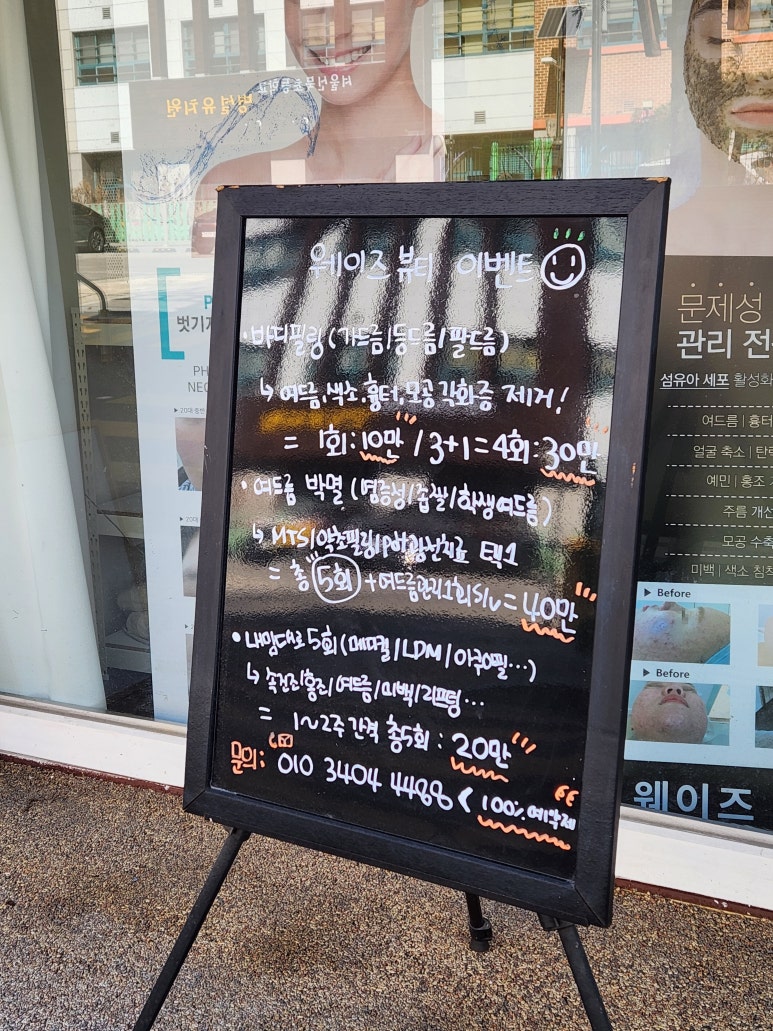 웨이즈 뷰티 이벤트
· 바디필링 (가드름/등드름/팔드름)
↳ 여드름, 색소, 흉터, 모공각화증 제거!
= 1회 : 10만 / 3+1 = 4회 : 30만
· 여드름 박멸 (염증성/좁쌀/학생여드름)
↳ MTS/약초필링/PDT광선치료 택1
= 총 5회 + 여드름관리1회 S/v = 40만
· 내맘대로 5회 (메디컬/LDM/아쿠아필…)
↳ 속건조/홍조/여드름/미백/리프팅…
= 1~2주 간격 총5회 : 20만
문의 : 010 3404 4488 < 100% 예약제
병설유치원
벗기지
▶ 20대 중반
문제성
관리 전
섬유아 세포 활성화
여드름 | 흉터
얼굴 축소 | 탄력
예민 | 홍조
주름 개선
모공 수축
미백 | 색소 침착
▶ Before
▶ Before
웨이즈